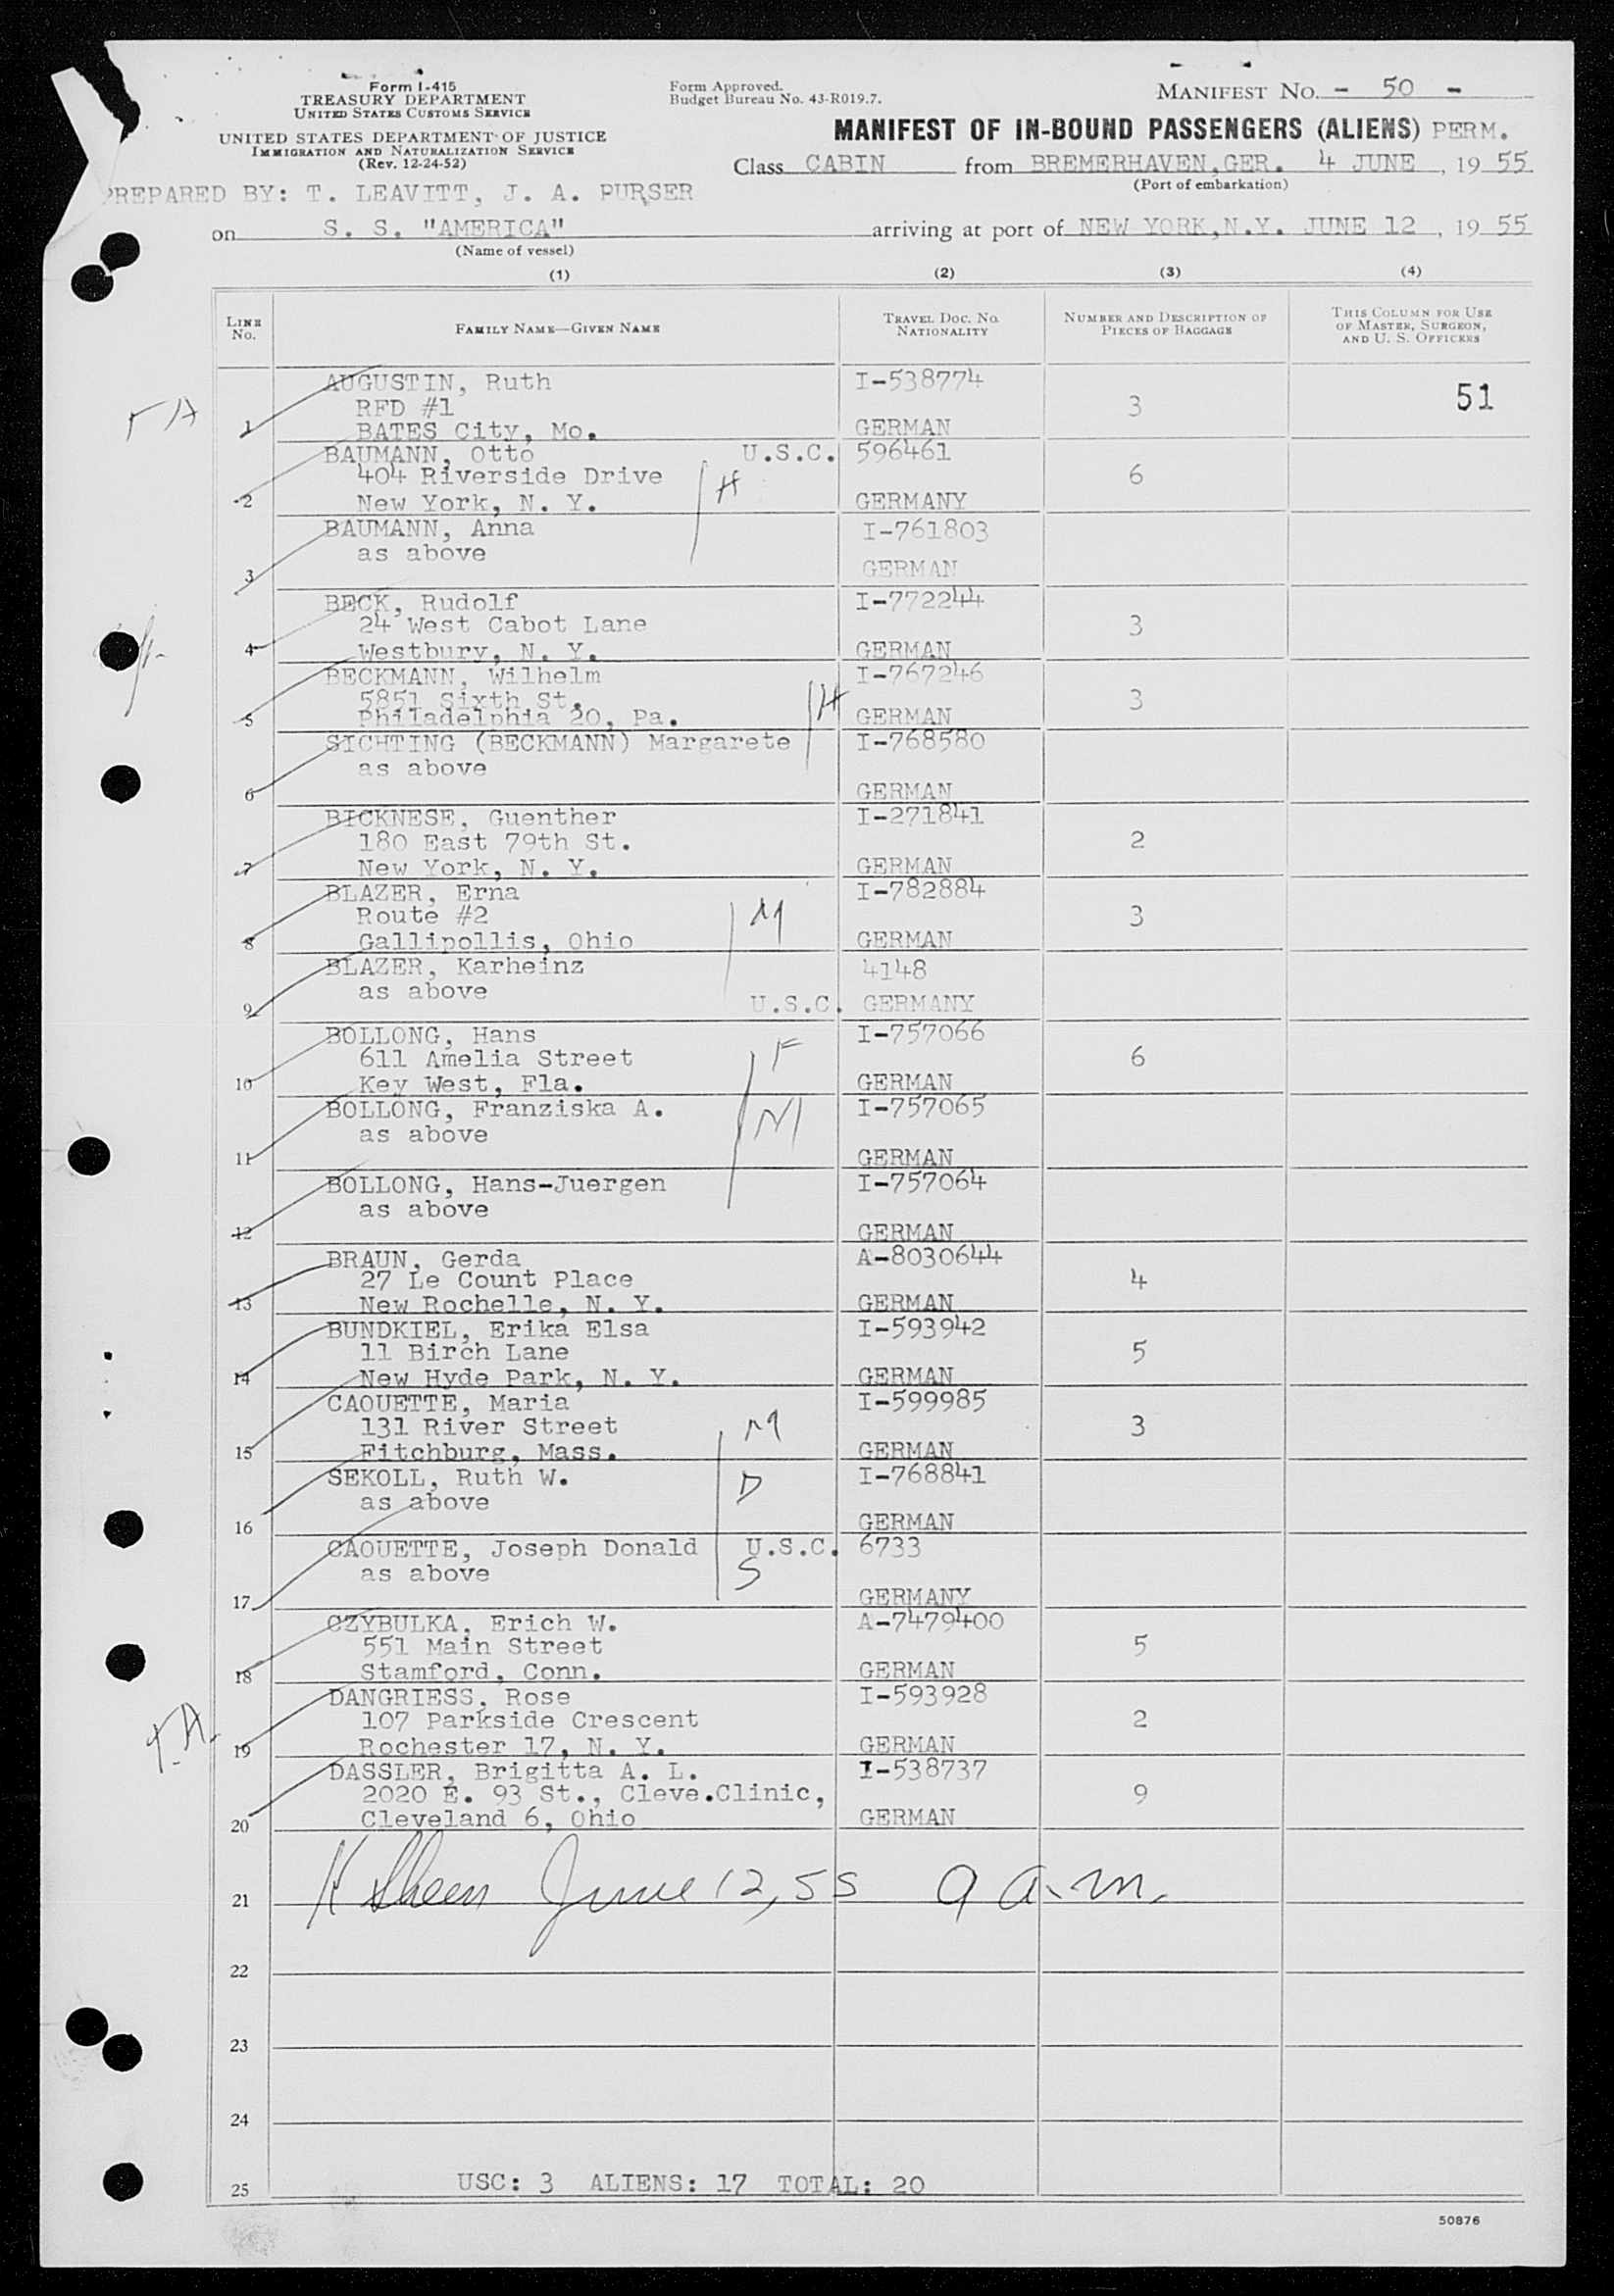 Form I-415
TREASURY DEPARTMENT
UNITED STATES CUSTOMS SERVICE
UNITED STATES DEPARTMENT OF JUSTICE
IMMIGRATION AND NATURALIZATION SERVICE
(Rev. 12-24-52)
Form Approved.
Budget Bureau No. 43-R019.7.
MANIFEST NO. - 50 -
MANIFEST OF IN-BOUND PASSENGERS (ALIENS) PERM.
Class CABIN from BREMERHAVEN,GER. 4 JUNE, 19 55
(Port of embarkation)
PREPARED BY: T. LEAVITT, J. A. PURSER
on S. S. "AMERICA" arriving at port of NEW YORK,N.Y. JUNE 12, 19 55
(Name of vessel)
(1) (2) (3) (4)
LINE No. FAMILY NAME—GIVEN NAME TRAVEL DOC. NO. NATIONALITY NUMBER AND DESCRIPTION OF PIECES OF BAGGAGE THIS COLUMN FOR USE OF MASTER, SURGEON, AND U. S. OFFICERS
AUGUSTIN, Ruth I-538774
RFD #1 3 51
1 BATES City, Mo. GERMAN
BAUMANN, Otto U.S.C. 596461
404 Riverside Drive H 6
2 New York, N. Y. GERMANY
BAUMANN, Anna I-761803
as above
3 GERMAN
BECK, Rudolf I-772244
24 West Cabot Lane 3
4 Westbury, N. Y. GERMAN
BECKMANN, Wilhelm I-767246
5851 Sixth St. H 3
5 Philadelphia 20, Pa. GERMAN
SICHTING (BECKMANN) Margarete I-768580
as above
6 GERMAN
BICKNESE, Guenther I-271841
180 East 79th St. 2
7 New York, N. Y. GERMAN
BLAZER, Erna I-782884
Route #2 M 3
8 Gallipollis, Ohio GERMAN
BLAZER, Karheinz 4148
as above
9 U.S.C. GERMANY
BOLLONG, Hans I-757066
611 Amelia Street F 6
10 Key West, Fla. GERMAN
BOLLONG, Franziska A. I-757065
as above M
11 GERMAN
BOLLONG, Hans-Juergen I-757064
as above
12 GERMAN
BRAUN, Gerda A-8030644
27 Le Count Place 4
13 New Rochelle, N. Y. GERMAN
BUNDKIEL, Erika Elsa I-593942
11 Birch Lane 5
14 New Hyde Park, N. Y. GERMAN
CAOUETTE, Maria I-599985
131 River Street M 3
15 Fitchburg, Mass. GERMAN
SEKOLL, Ruth W. I-768841
as above D
16 GERMAN
CAOUETTE, Joseph Donald U.S.C. 6733
as above S
17 GERMANY
CZYBULKA, Erich W. A-7479400
551 Main Street 5
18 Stamford, Conn. GERMAN
DANGRIESS, Rose I-593928
107 Parkside Crescent 2
19 Rochester 17, N. Y. GERMAN
DASSLER, Brigitta A. L. I-538737
2020 E. 93 St., Cleve.Clinic, 9
20 Cleveland 6, Ohio GERMAN
21 June 12, 55 9 a.m.
22
23
24
25 USC: 3 ALIENS: 17 TOTAL: 20
50876